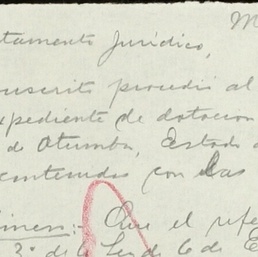 M
tamento Jurídico,
suscrito procedió al
xpediente de dotacion
de Otumba, Estado d
contenidos con las
imero:- Que el refe
3° de la Ley de 6 de E